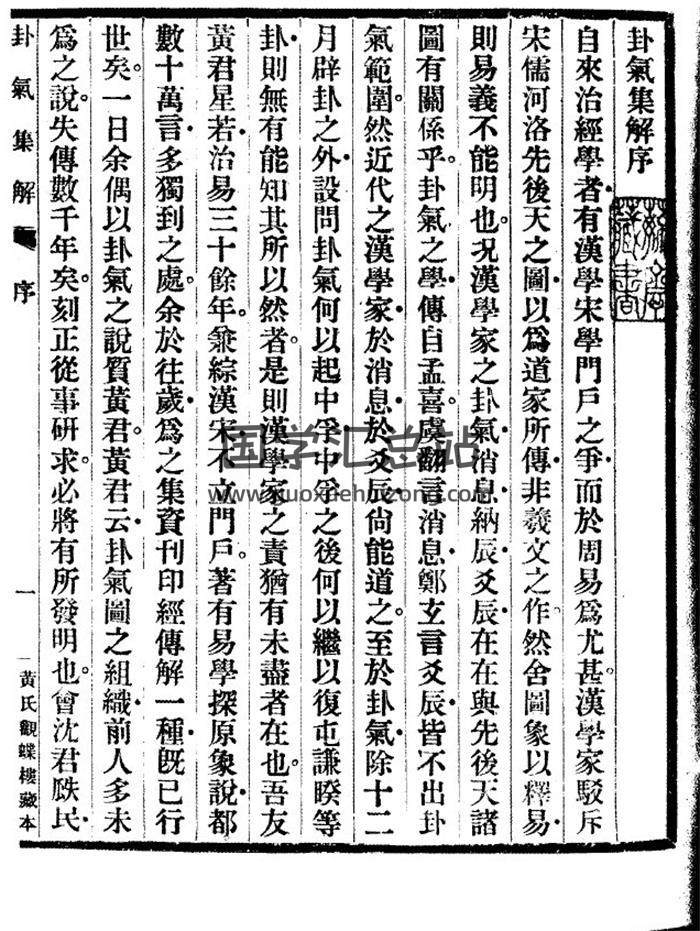 卦氣集解序
自來治經學者有漢學宋學門戶之爭而於周易爲尤甚。漢學家駁斥
宋儒河洛先後天之圖以爲道家所傳非羲文之作然舍圖象以釋易
則易義不能明也況漢學家之卦氣消息納辰爻辰在在與先後天諸
圖有關係乎卦氣之學傳自孟喜。虞翻言消息鄭玄言爻辰皆不出卦
氣範圍。然近代之漢學家於消息於爻辰尙能道之。至於卦氣除十二
月辟卦之外設問卦氣何以起中孚中孚之後何以繼以復屯謙睽等
卦則無有能知其所以然者。是則漢學家之責猶有未盡者在也。吾友
黃君星若治易三十餘年。兼綜漢宋不立門戶。著有易學探原象說都
數十萬言多獨到之處。余於往歲爲之集資刊印經傳解一種旣已行
世矣。一日余偶以卦氣之說質黃君。黃君云卦氣圖之組織前人多未
爲之說。失傳數千年矣。刻正從事研求。必將有所發明也。會沈君瓞民
卦氣集解 序 一 黃氏觀蝶樓藏本
藏書
国学汇总站
www.guoxuehuizong.com